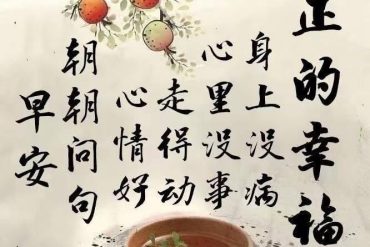 正的幸福
身上没病
心里没事
走得动
心情好
朝朝问句
早安